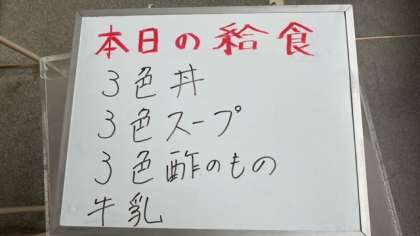 本日の給食
3色丼
3色スープ
3色酢のもの
牛乳